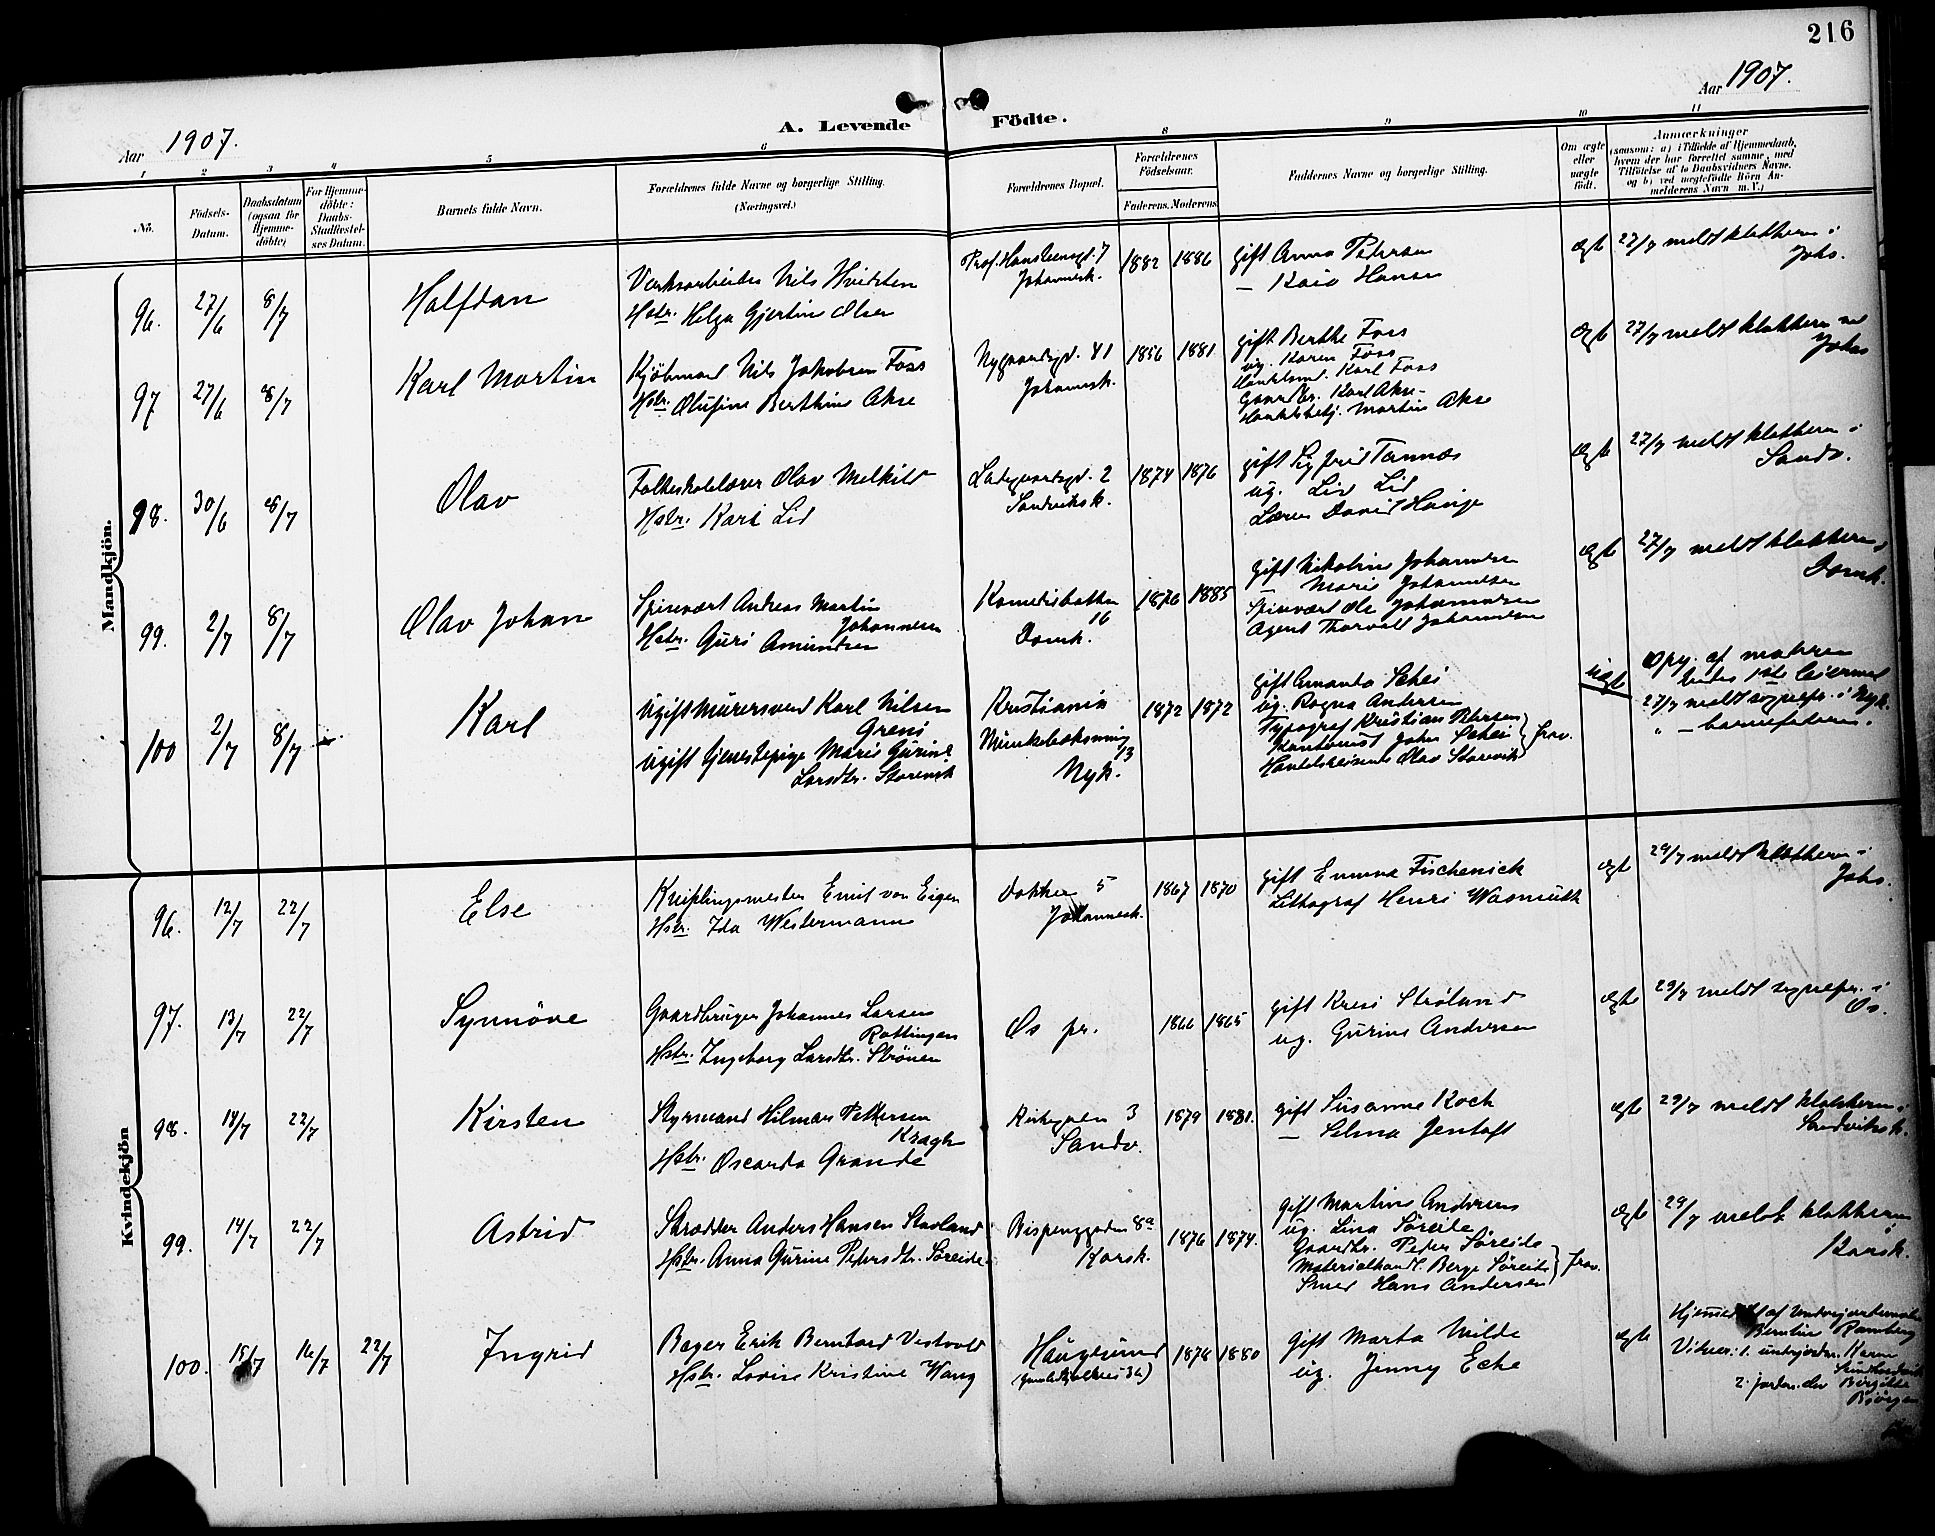 216
Aar 1907.
A. Levende Födte.
Aar 1907.
1 2 3 4 5 6 8 9 10 11
No.
Födsels-
Datum.
Daabsdatum
(ogsaa for
Hjemme-
döbte)
For Hjemme-
döbte:
Daabs-
Stadfæstel-
ses Datum.
Barnets fulde Navn.
Forældrenes fulde Navne og borgerlige Stilling.
(Næringsvei.)
Forældrenes Bopæl.
Forældrenes
Födselsaar.
Faderens. Moderens
Faddernes Navne og borgerlige Stilling.
Om ægte
eller
uægte
födt.
Anmærkninger
(saasom: a) i Tilfælde af Hjemmedaab,
hvem der har forrettet samme, med
Tilföielse af to Daabsvidners Navne.
og b) ved uægtefödte Börn An-
melderens Navn m. V.)
Mandkjön.
96. 27/6 8/7
Halfdan
Nils Hvidsten
Hstr. Helga Gjertine Olsen
7
Johannesk.
1882 1886
gift Anna Petersen
Hansen
ægte
27/7 meldt klokkeren i
Johs.
97 27/6 8/7
Karl Martin
Kjöbmand Nils Jakobsen Foss
Hstr. Olufine Berthine Akse
Nygaardsgd. 41
Johannesk.
1856 1881
gift Berthe Foss
ug. Karen Foss
Karl Foss
Gaardbr. Karl Akse
Martin Akse
ægte
27/7 meldt klokkeren
Johs
98. 30/6 8/7
Olav
Folkeskolelærer Olav Melkild
Hstr. Kari Lid
Ladegaardsgd. 2
Sandviksk.
1874 1876
gift Sigfrid Tannæs
ug. Liv Lid
Lærer David Hauge
ægte
27/7 meldt klokkeren i
Sandv.
99. 2/7 8/7
Olav Johan
Spisevært Andreas Martin
Johannesen
Hstr. Guri Amundsen
Komediebakken
16
Domk.
1876 1885
gift Nikoline Johannesen
— Marie Johannesen
Spisevært Ole Johannesen
Agent Thorvald Johannesen
ægte
27/7 meldt klokkeren i
Domk.
100 2/7 8/7
Karl
Ugift Murersvend Karl Nilsen
Greni
Ugift tjenestepige Marie Gurine
Larsdtr.
Kristiania
Munkebæksmug
13
Nyk.
1872 1872
gift Amanda
ug. Ragna Andersen
Typograf Kristian Petersen
Kontorist John
Handelsreisende Olav
frav.
uægte
Opg. af moderen
begges 1ste leiermaal
27/7 meldt sognepr. i Nyk.
" — barnefaderen.
Kvindekjön
96. 12/7 22/7
Else
Emil von Eigen
Hstr. Ida Westermann
Dokken 5
Johannesk.
1867 1870
gift Emma Fischenick
Lithograf Henri Wasmuth
ægte
29/7 meldt klokkeren i
Johs.
97. 13/7 22/7
Synnöve
Gaardbruger Johannes Larsen
Rottingen
Hstr. Ingeborg Larsdtr. Strönen
Os pr.
1866 1865
gift Kresi Ströland
ug. Gurine Andersen
ægte
29/7 meldt sognepr. i
Os.
98. 14/7 22/7
Kirsten
Styrmand Hilmar Pettersen
Kragh
Hstr. Oscarda Grande
Kirkegaten 3
Sandv.
1879 1881.
gift Susanne Koch
— Selma Jentoft
ægte
29/7 meldt klokkeren i
Sandviksk.
99. 14/7 22/7
Astrid
Skrædder Anders Hansen Stavland
Hstr. Anna Gurine Pedersdtr. Söreide.
8a
Korsk.
1876 1874.
gift Martine Andersen
ug. Lina Söreide
Gaardbr. Peder Söreide
Materialhandl. Berge Söreide
Smed Hans Andersen
frav.
ægte
29/7 meldt klokkeren
i
Korsk.
100. 15/7 16/7 22/7
Ingrid
Bager Erik Berntard Vestvold
Hstr. Lovise Kristine Wang
Haugesund
1878 1880
gift Marta Milde
ug. Jenny Eche
ægte
af
Ramberg
Vidner: 1. Karen
2. Birgitte